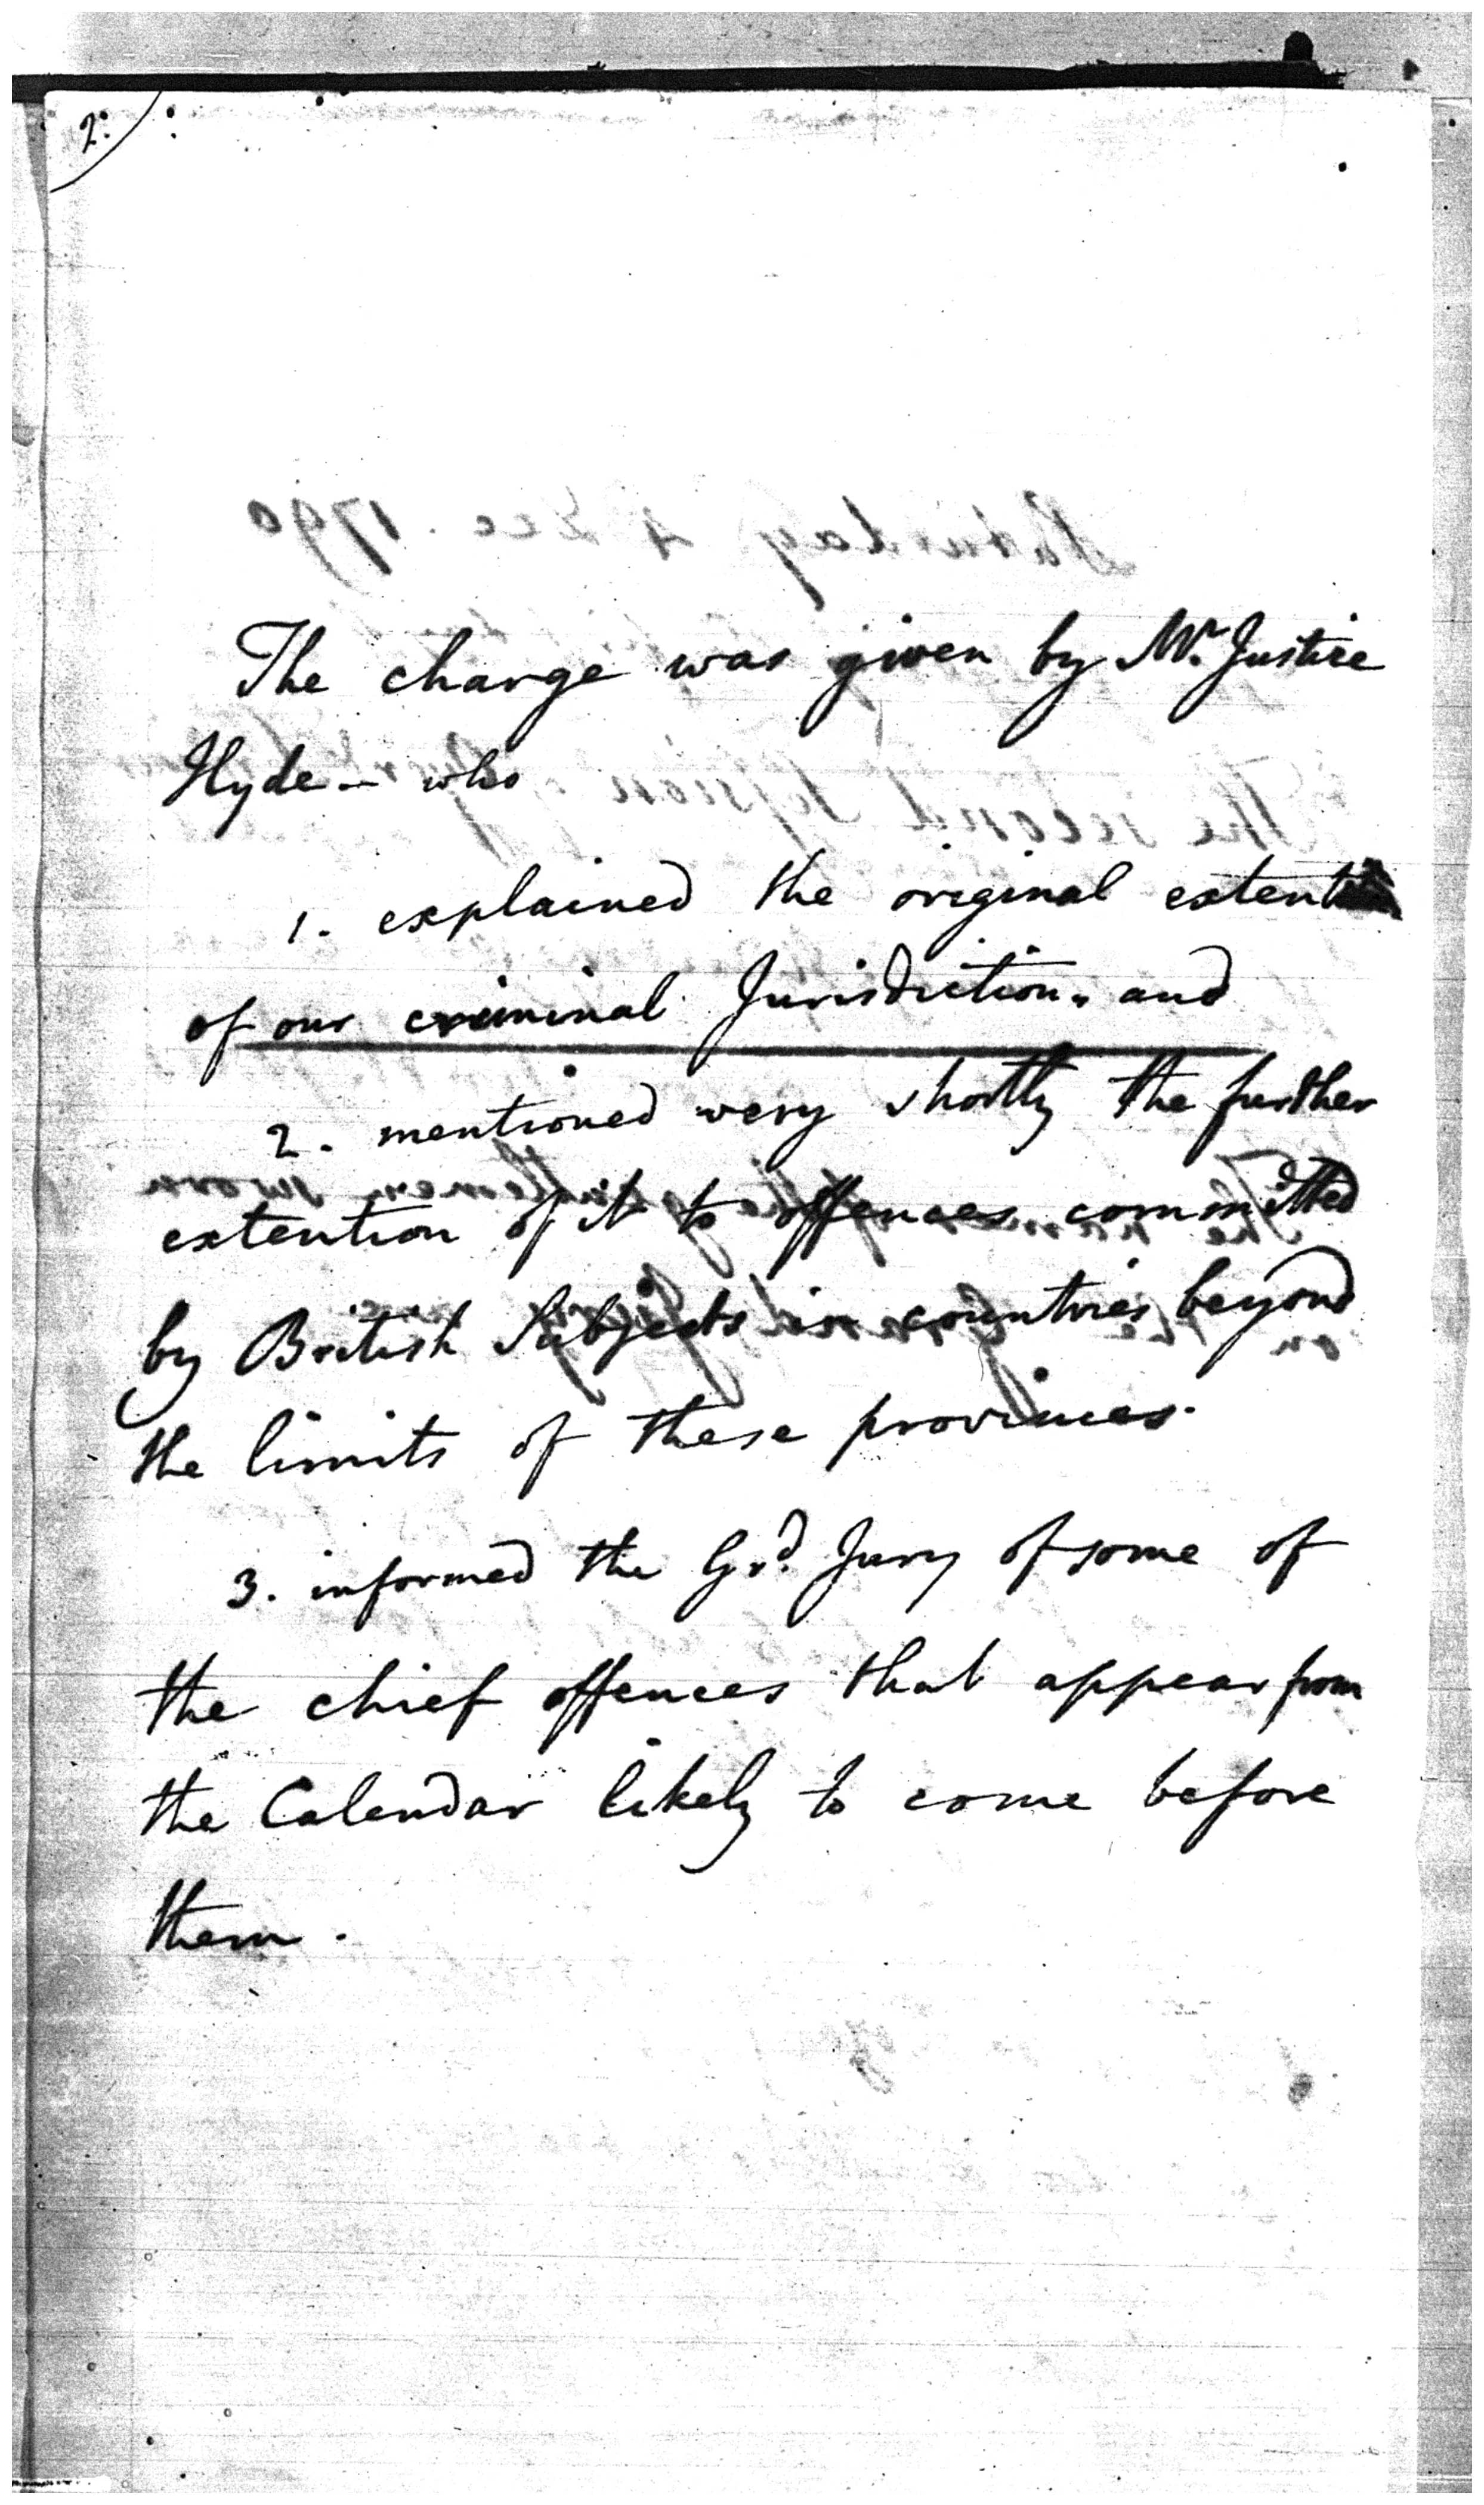 2.
The charge was given by Mr. Justice
Hyde - who
1. explained the original extent
of our criminal Jurisdiction, and
2. mentioned very shortly the further
extention of it to offences committed
by British Subjects in countries beyond
the limits of these provinces.
3. informed the Grd. Jury of some of
the chief offences that appear from
the Calendar likely to come before
them.